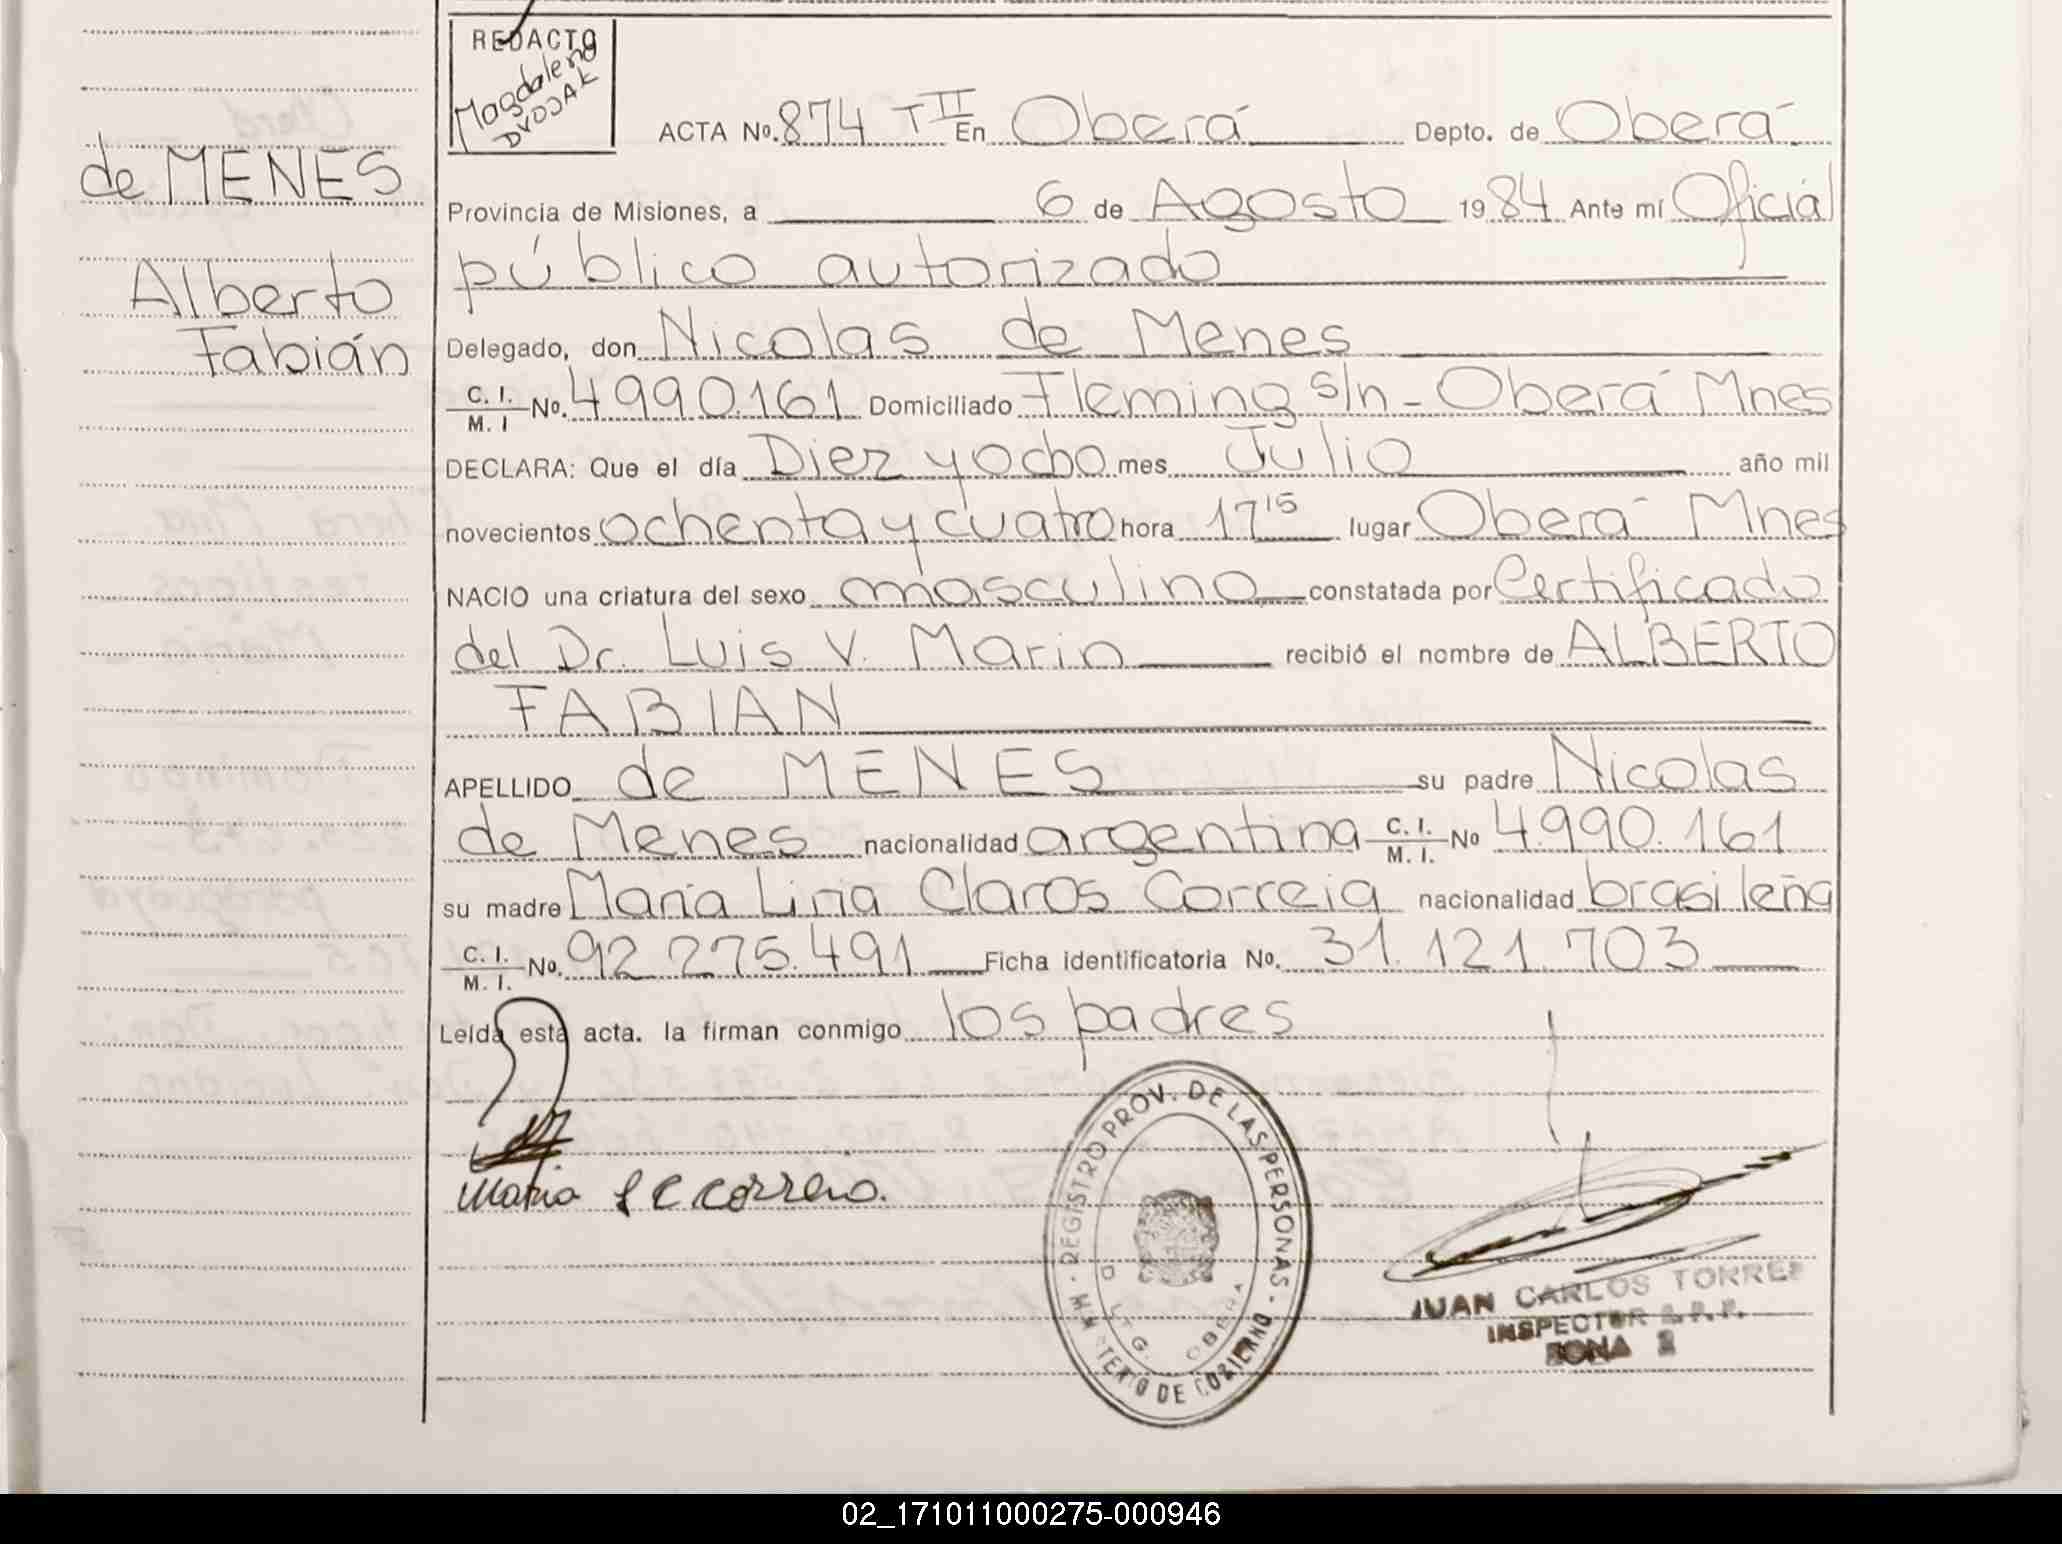 REDACTO
Magdalena
DVOJAK
ACTA No. 874 T II En Oberá Depto. de Oberá
de MENES
Provincia de Misiones, a 6 de Agosto 1984 Ante mí Oficial
público autorizado
Alberto
Fabián
Delegado, don Nicolas de Menes
C. I. / M. I No. 4990.161 Domiciliado Fleming s/n - Oberá Mnes
DECLARA: Que el día Diez y ocho mes Julio año mil
novecientos ochenta y cuatro hora 17 15 lugar Oberá Mnes
NACIO una criatura del sexo masculino constatada por Certificado
del Dr. Luis V. Marin recibió el nombre de ALBERTO
FABIAN
APELLIDO de MENES su padre Nicolas
de Menes nacionalidad argentina C. I. / M. I. No 4.990.161
su madre María Liria Claros Correia nacionalidad brasileña
C. I. / M. I. No. 92 275.491 Ficha identificatoria No. 31.121.703
Leída esta acta. la firman conmigo los padres
Maria L C Correia.
REGISTRO PROV. DE LAS PERSONAS - MINISTERIO DE GOBIERNO
OBERA
JUAN CARLOS TORRES
INSPECTOR R.P.P.
ZONA 2
02_171011000275-000946